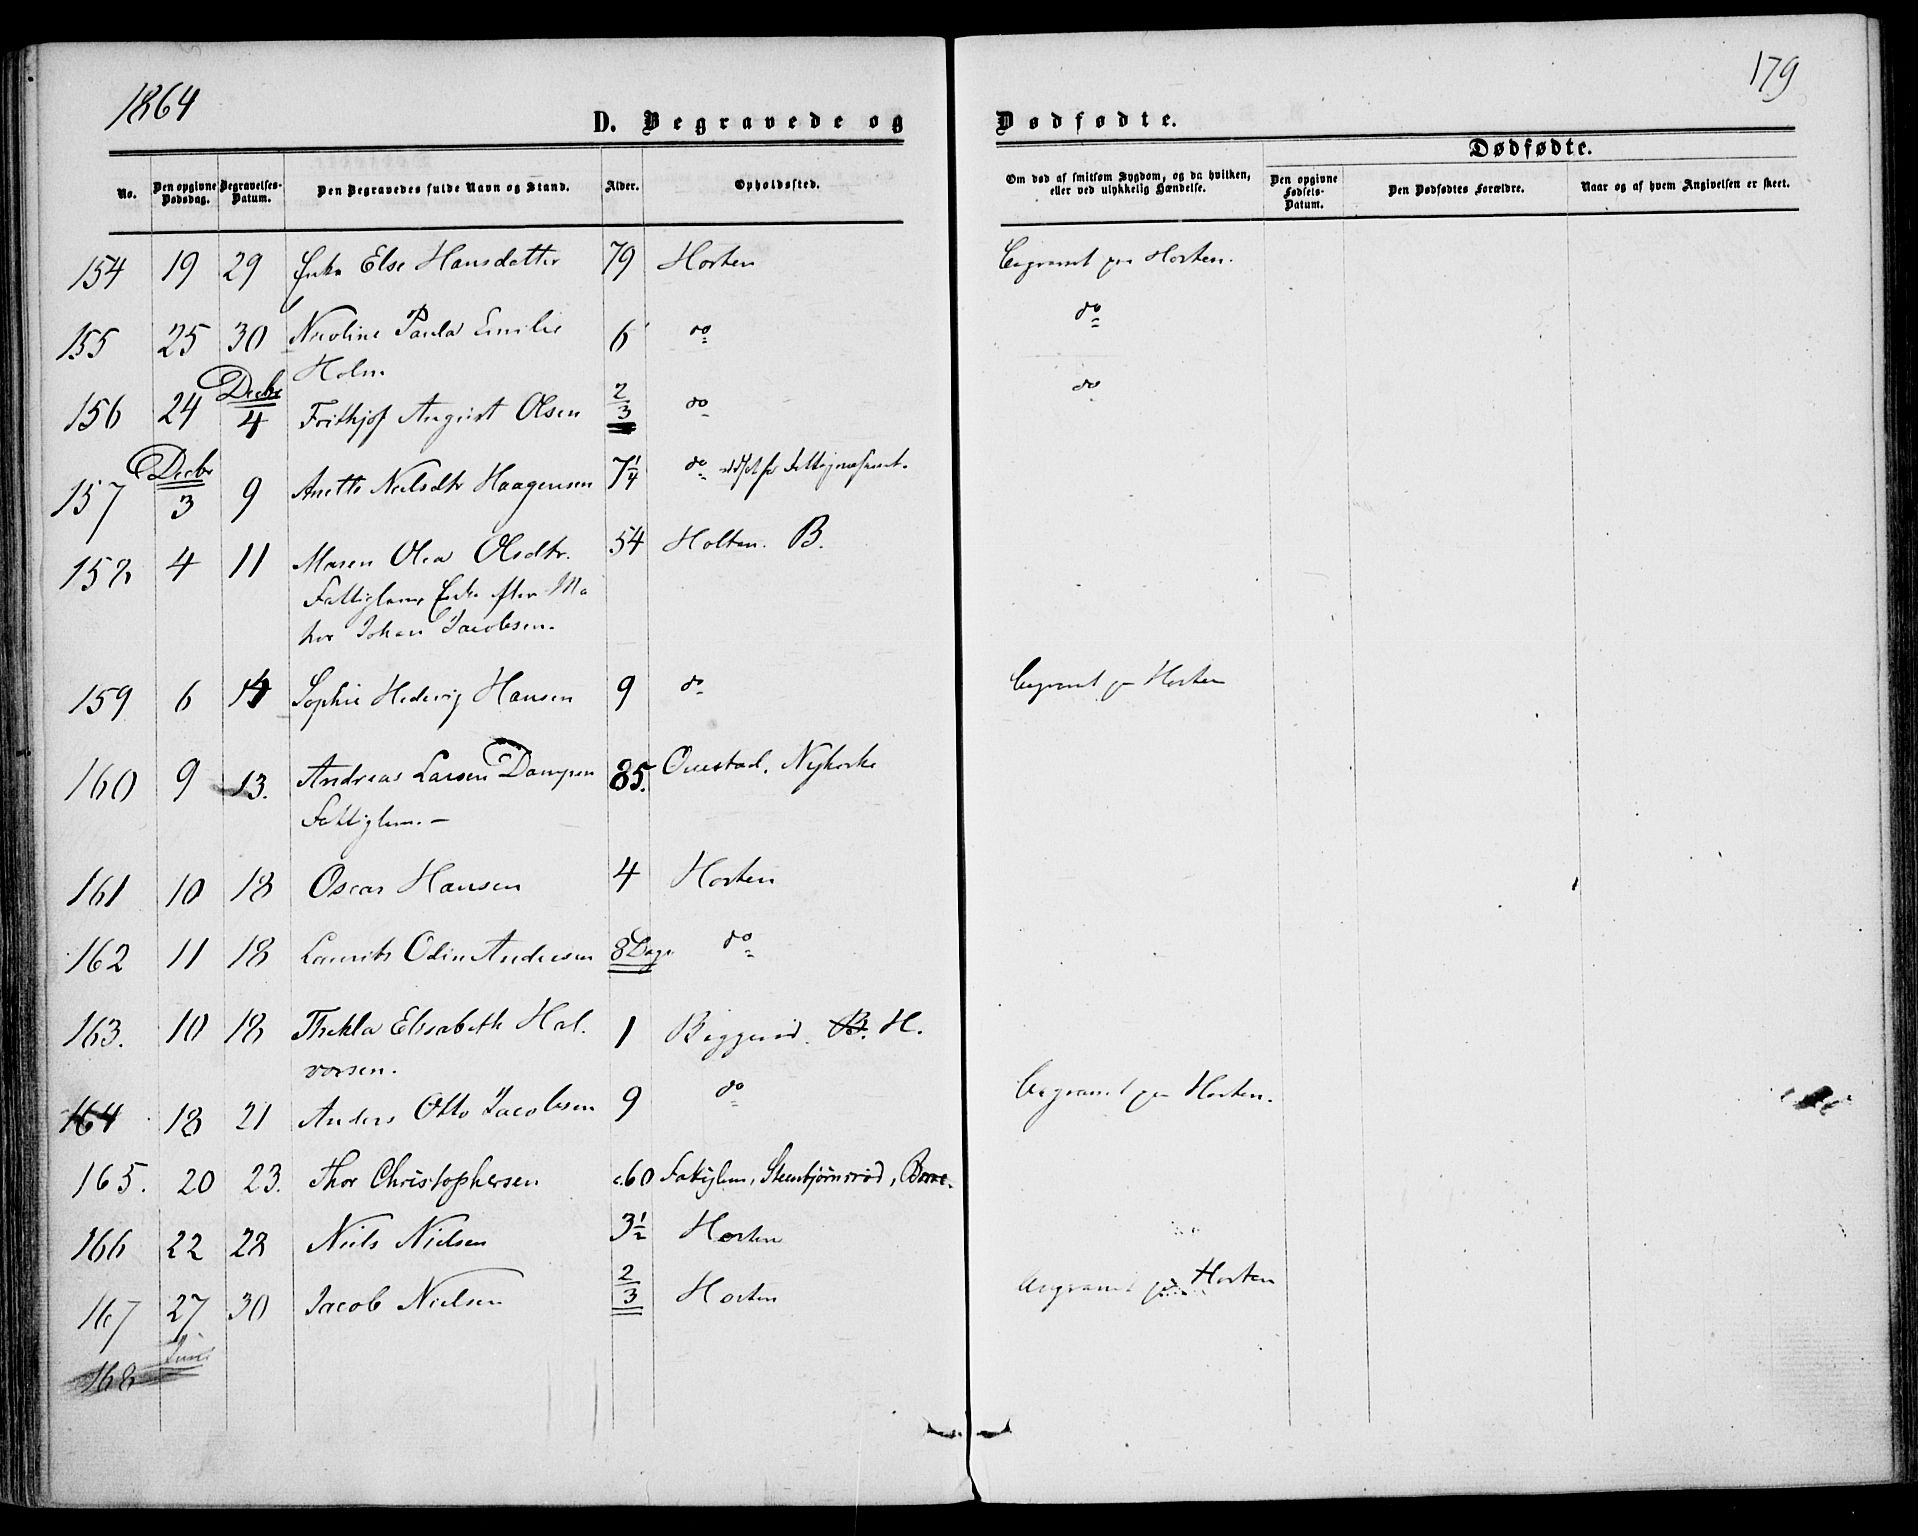 1864
179
D. Begravede og Dødfødte.
Dødfødte.
No.
Den opgivne Dødsdag.
Begravelses-Datum.
Den Begravedes fulde Navn og Stand.
Alder.
Opholdssted.
Om død af smitsom Sygdom, og da hvilken, eller ved ulykkelig Hændelse.
Den opgivne Fødsels-Datum.
Den Dødfødtes Forældre.
Naar og af hvem Angivelsen er skeet.
154 19 29 Enke Else Hansdatter 79 Horten Begravet paa Horten.
155 25 30 Nicoline Paula Emilie 6 do do
Holm
156 24 Decbr 4 Frithjof August Olsen 2/3 do do
157 Decbr 3 9 Anette Nielsdtr Haagensen 7 1/4 do
158 4 11 Maren Olea Olsdtr. 54 Holtan. B.
Fattiglem, Enke efter Ma
hor Johan Jacobsen.
159 6 14 Sophie Hedevig Hansen 9 do Begravet paa Horten
160 9 13. Andreas Larsen Dampen 85. Nykirke
Fattiglem. –
161 10 18 Oscar Hansen 4 Horten
162 11 18 Laurits Odin Andersen 8 Dage do
163. 10 18 Thekla Elisabeth Hal- 1 B. H.
vorsen.
164 18 21 Anders Otto Jacobsen 9 do Begravet paa Horten.
165. 20 23. Thor Christophersen c. 60 Fattiglem, Steenbjørnrød, Borre.
166 22 28 Niels Nielsen 3 1/2 Horten
167 27 30 Jacob Nielsen 2/3 Horten Begravet paa Horten
168